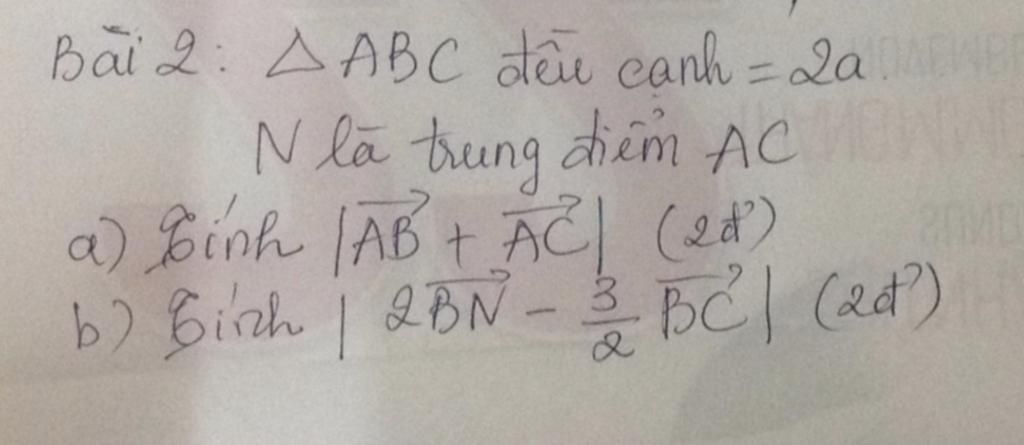 Bài 2: △ABC đều cạnh = 2a.
N là trung điểm AC
a) Tính |\overrightarrow{AB} + \overrightarrow{AC}| (2đ)
b) Tính |2\overrightarrow{BN} - \frac{3}{2}\overrightarrow{BC}| (2đ)